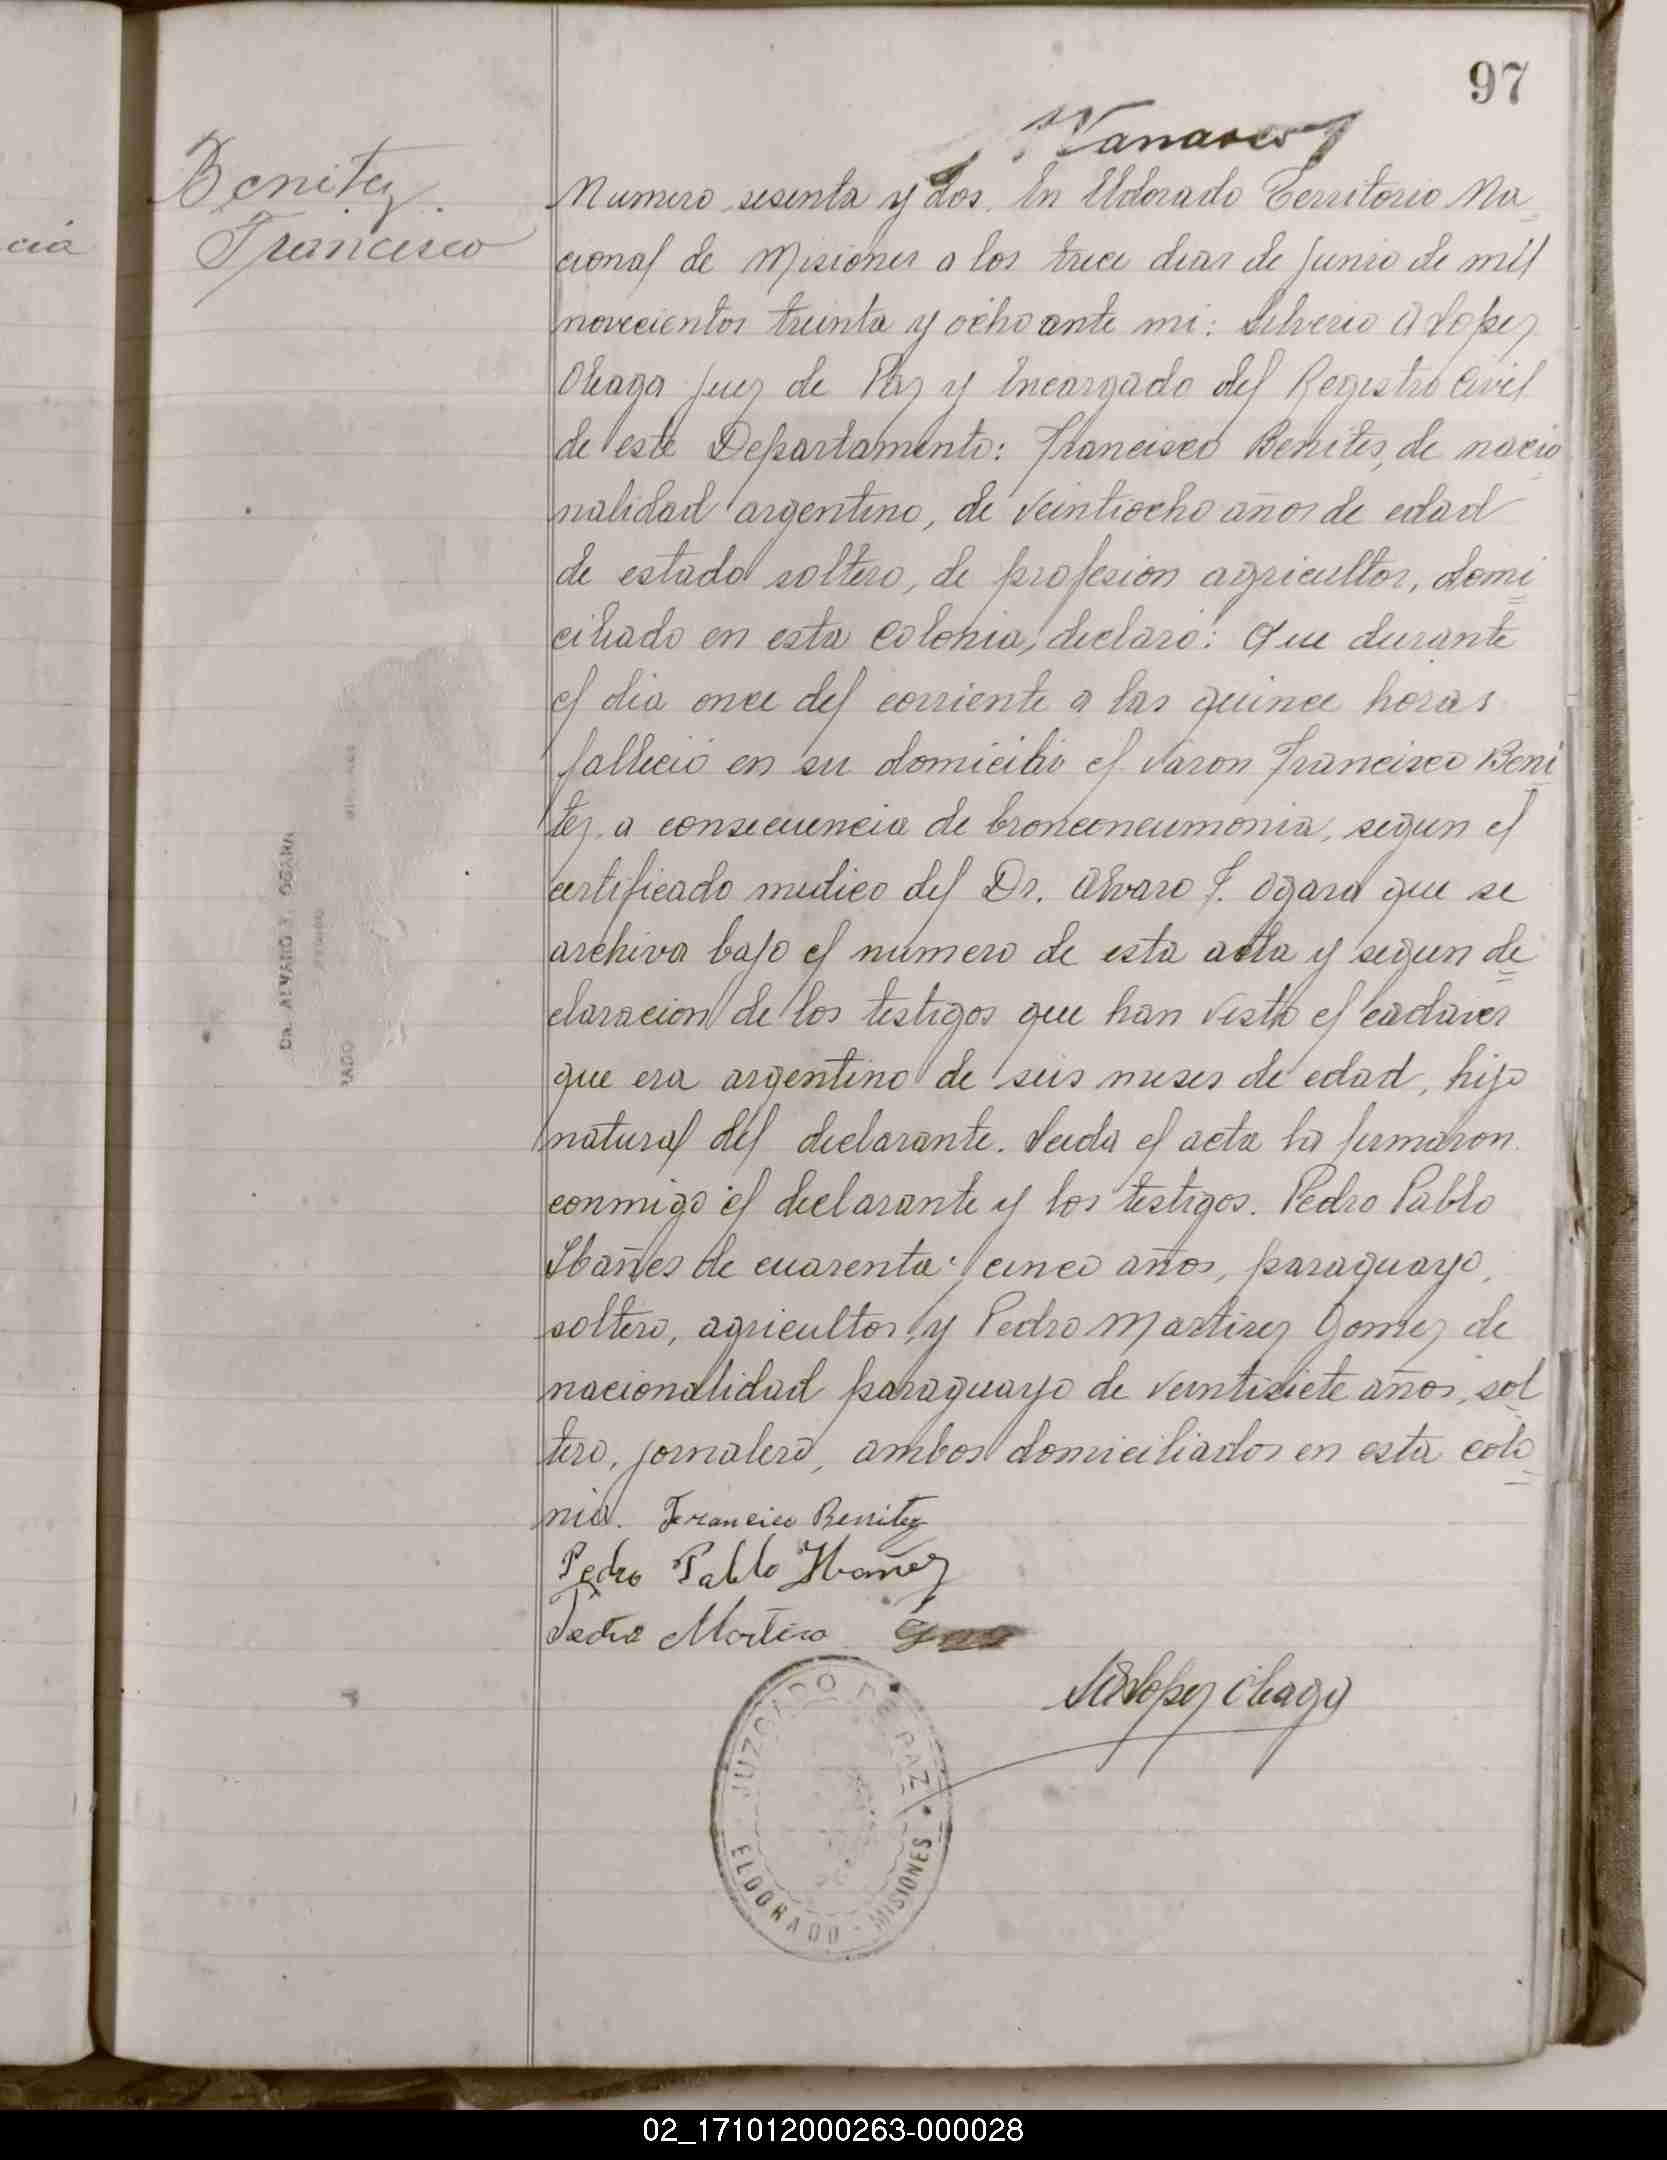 97
Benitez
Francisco
cia
Numero sesenta y dos. En Eldorado Territorio Na
cional de Misiones a los trece dias de Junio de mil
novecientos treinta y ocho ante mi: Silverio A Lopez
Oleaga Juez de Paz y Encargado del Registro Civil
de este Departamento: Francisco Benites, de nacio
nalidad argentino, de veintiocho años de edad
de estado soltero, de profesion agricultor, domi
ciliado en esta colonia, declaró: Que durante
el dia once del corriente a las quince horas
falleció en su domicilio el varon Francisco Beni
tez a consecuencia de bronconeumonia, segun el
certificado medico del Dr. Alvaro F. Ogara que se
archiva bajo el numero de esta acta y segun de
claracion de los testigos que han visto el cadaver
que era argentino de seis meses de edad, hijo
natural del declarante. Leida el acta la firmaron
conmigo el declarante y los testigos. Pedro Pablo
Ibañes de cuarenta y cinco años, paraguayo,
soltero, agricultor, y Pedro Martirez Gomez de
nacionalidad paraguayo de veintisiete años, sol
tero, jornalero, ambos domiciliados en esta colo
nia. Francico Benitez
Pedro Pablo Ibañez
Pedro Martirez
SALopez Oleaga
JUZGADO DE PAZ
ELDORADO - MISIONES
Dr. ALVARO
02_171012000263-000028